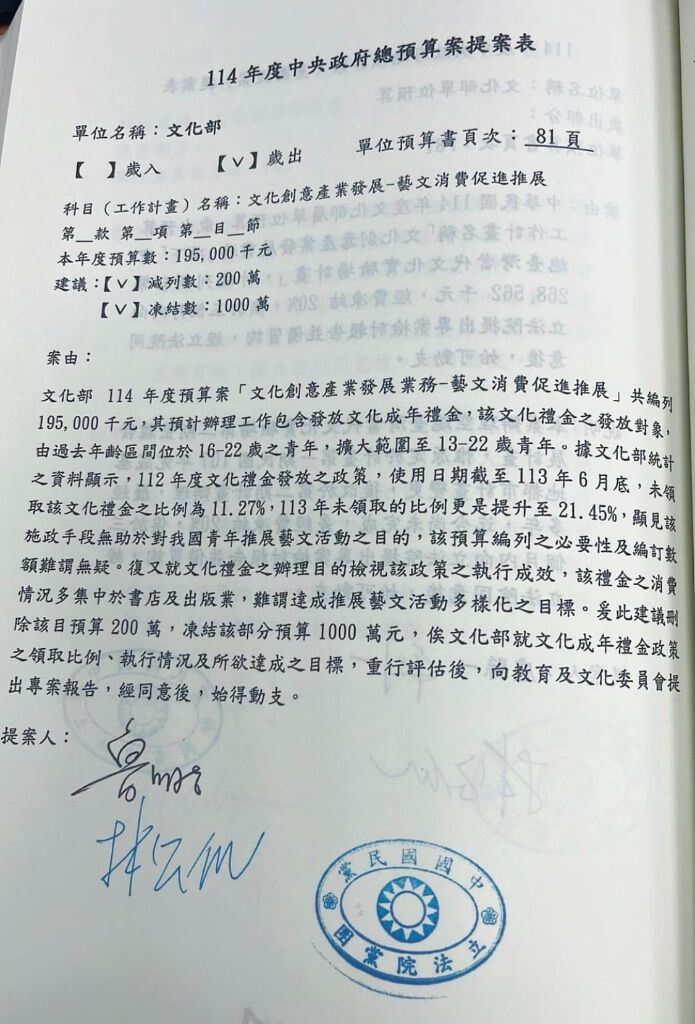 114 年度中央政府總預算案提案表
單位名稱：文化部
【　】歲入　　【ˇ】歲出　　單位預算書頁次：81 頁
科目（工作計畫）名稱：文化創意產業發展-藝文消費促進推展
第__款 第__項 第__目__節
本年度預算數：195,000 千元
建議：【ˇ】減列數：200 萬
【ˇ】凍結數：1000 萬
案由：
文化部 114 年度預算案「文化創意產業發展業務-藝文消費促進推展」共編列
195,000 千元，其預計辦理工作包含發放文化成年禮金，該文化禮金之發放對象，
由過去年齡區間位於 16-22 歲之青年，擴大範圍至 13-22 歲青年。據文化部統計
之資料顯示，112 年度文化禮金發放之政策，使用日期截至 113 年 6 月底，未領
取該文化禮金之比例為 11.27%，113 年未領取的比例更是提升至 21.45%，顯見該
施政手段無助於對我國青年推展藝文活動之目的，該預算編列之必要性及編訂數
額難謂無疑。復又就文化禮金之辦理目的檢視該政策之執行成效，該禮金之消費
情況多集中於書店及出版業，難謂達成推展藝文活動多樣化之目標。爰此建議刪
除該目預算 200 萬，凍結該部分預算 1000 萬元，俟文化部就文化成年禮金政策
之領取比例、執行情況及所欲達成之目標，重行評估後，向教育及文化委員會提
出專案報告，經同意後，始得動支。
提案人：
中國國民黨
立法院黨團